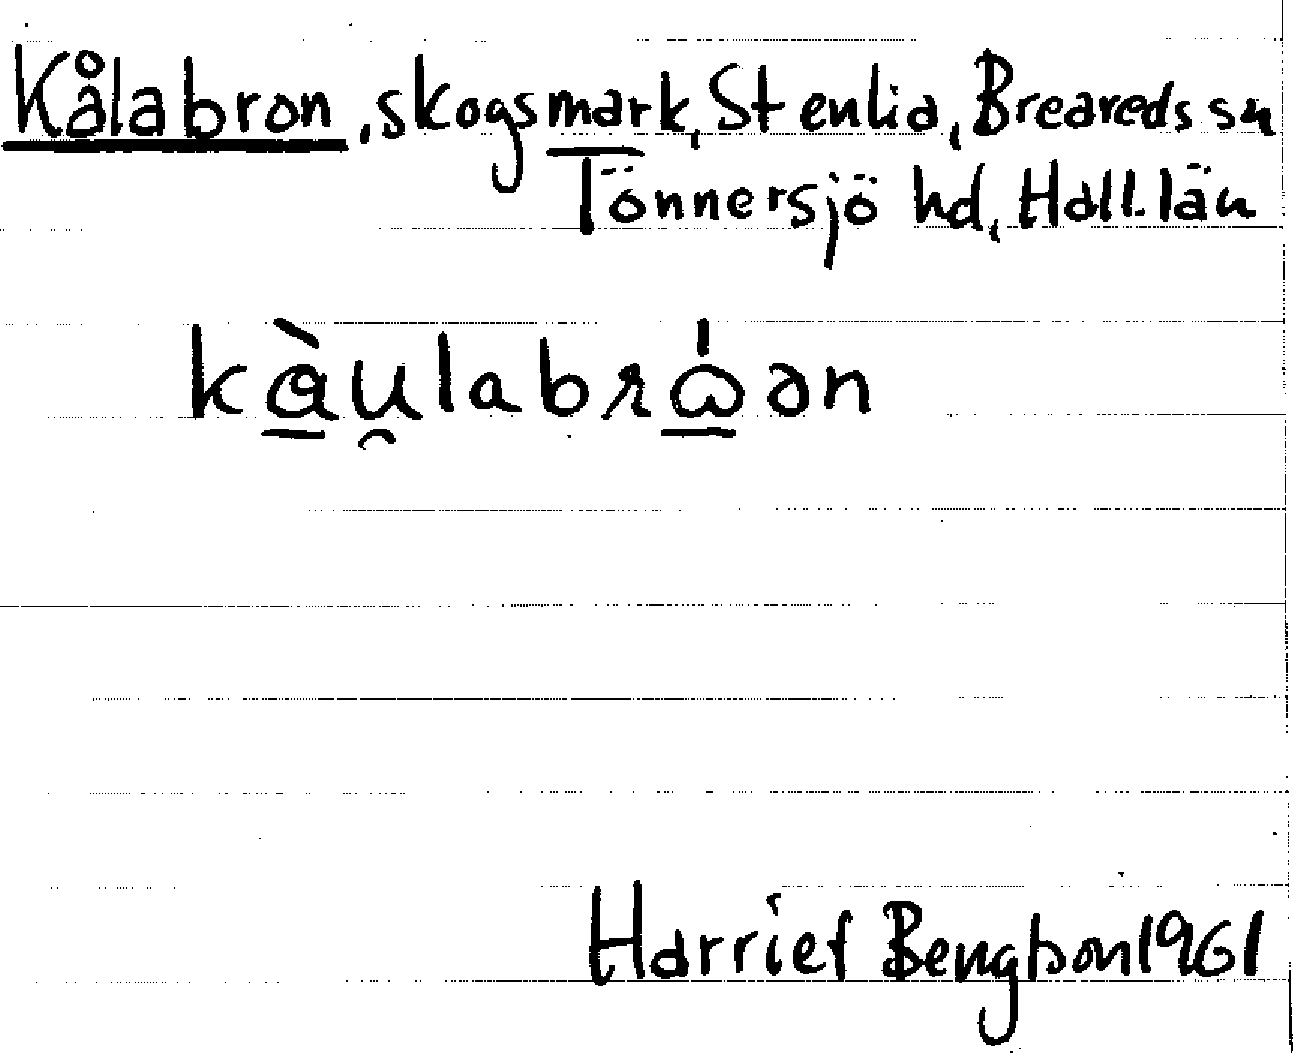 Kålabron, skogsmark, Stenlia, Breareds sn
Tönnersjö hd, Hall. län
kàu̯labrω̍ən
Harriet Bengtson 1961